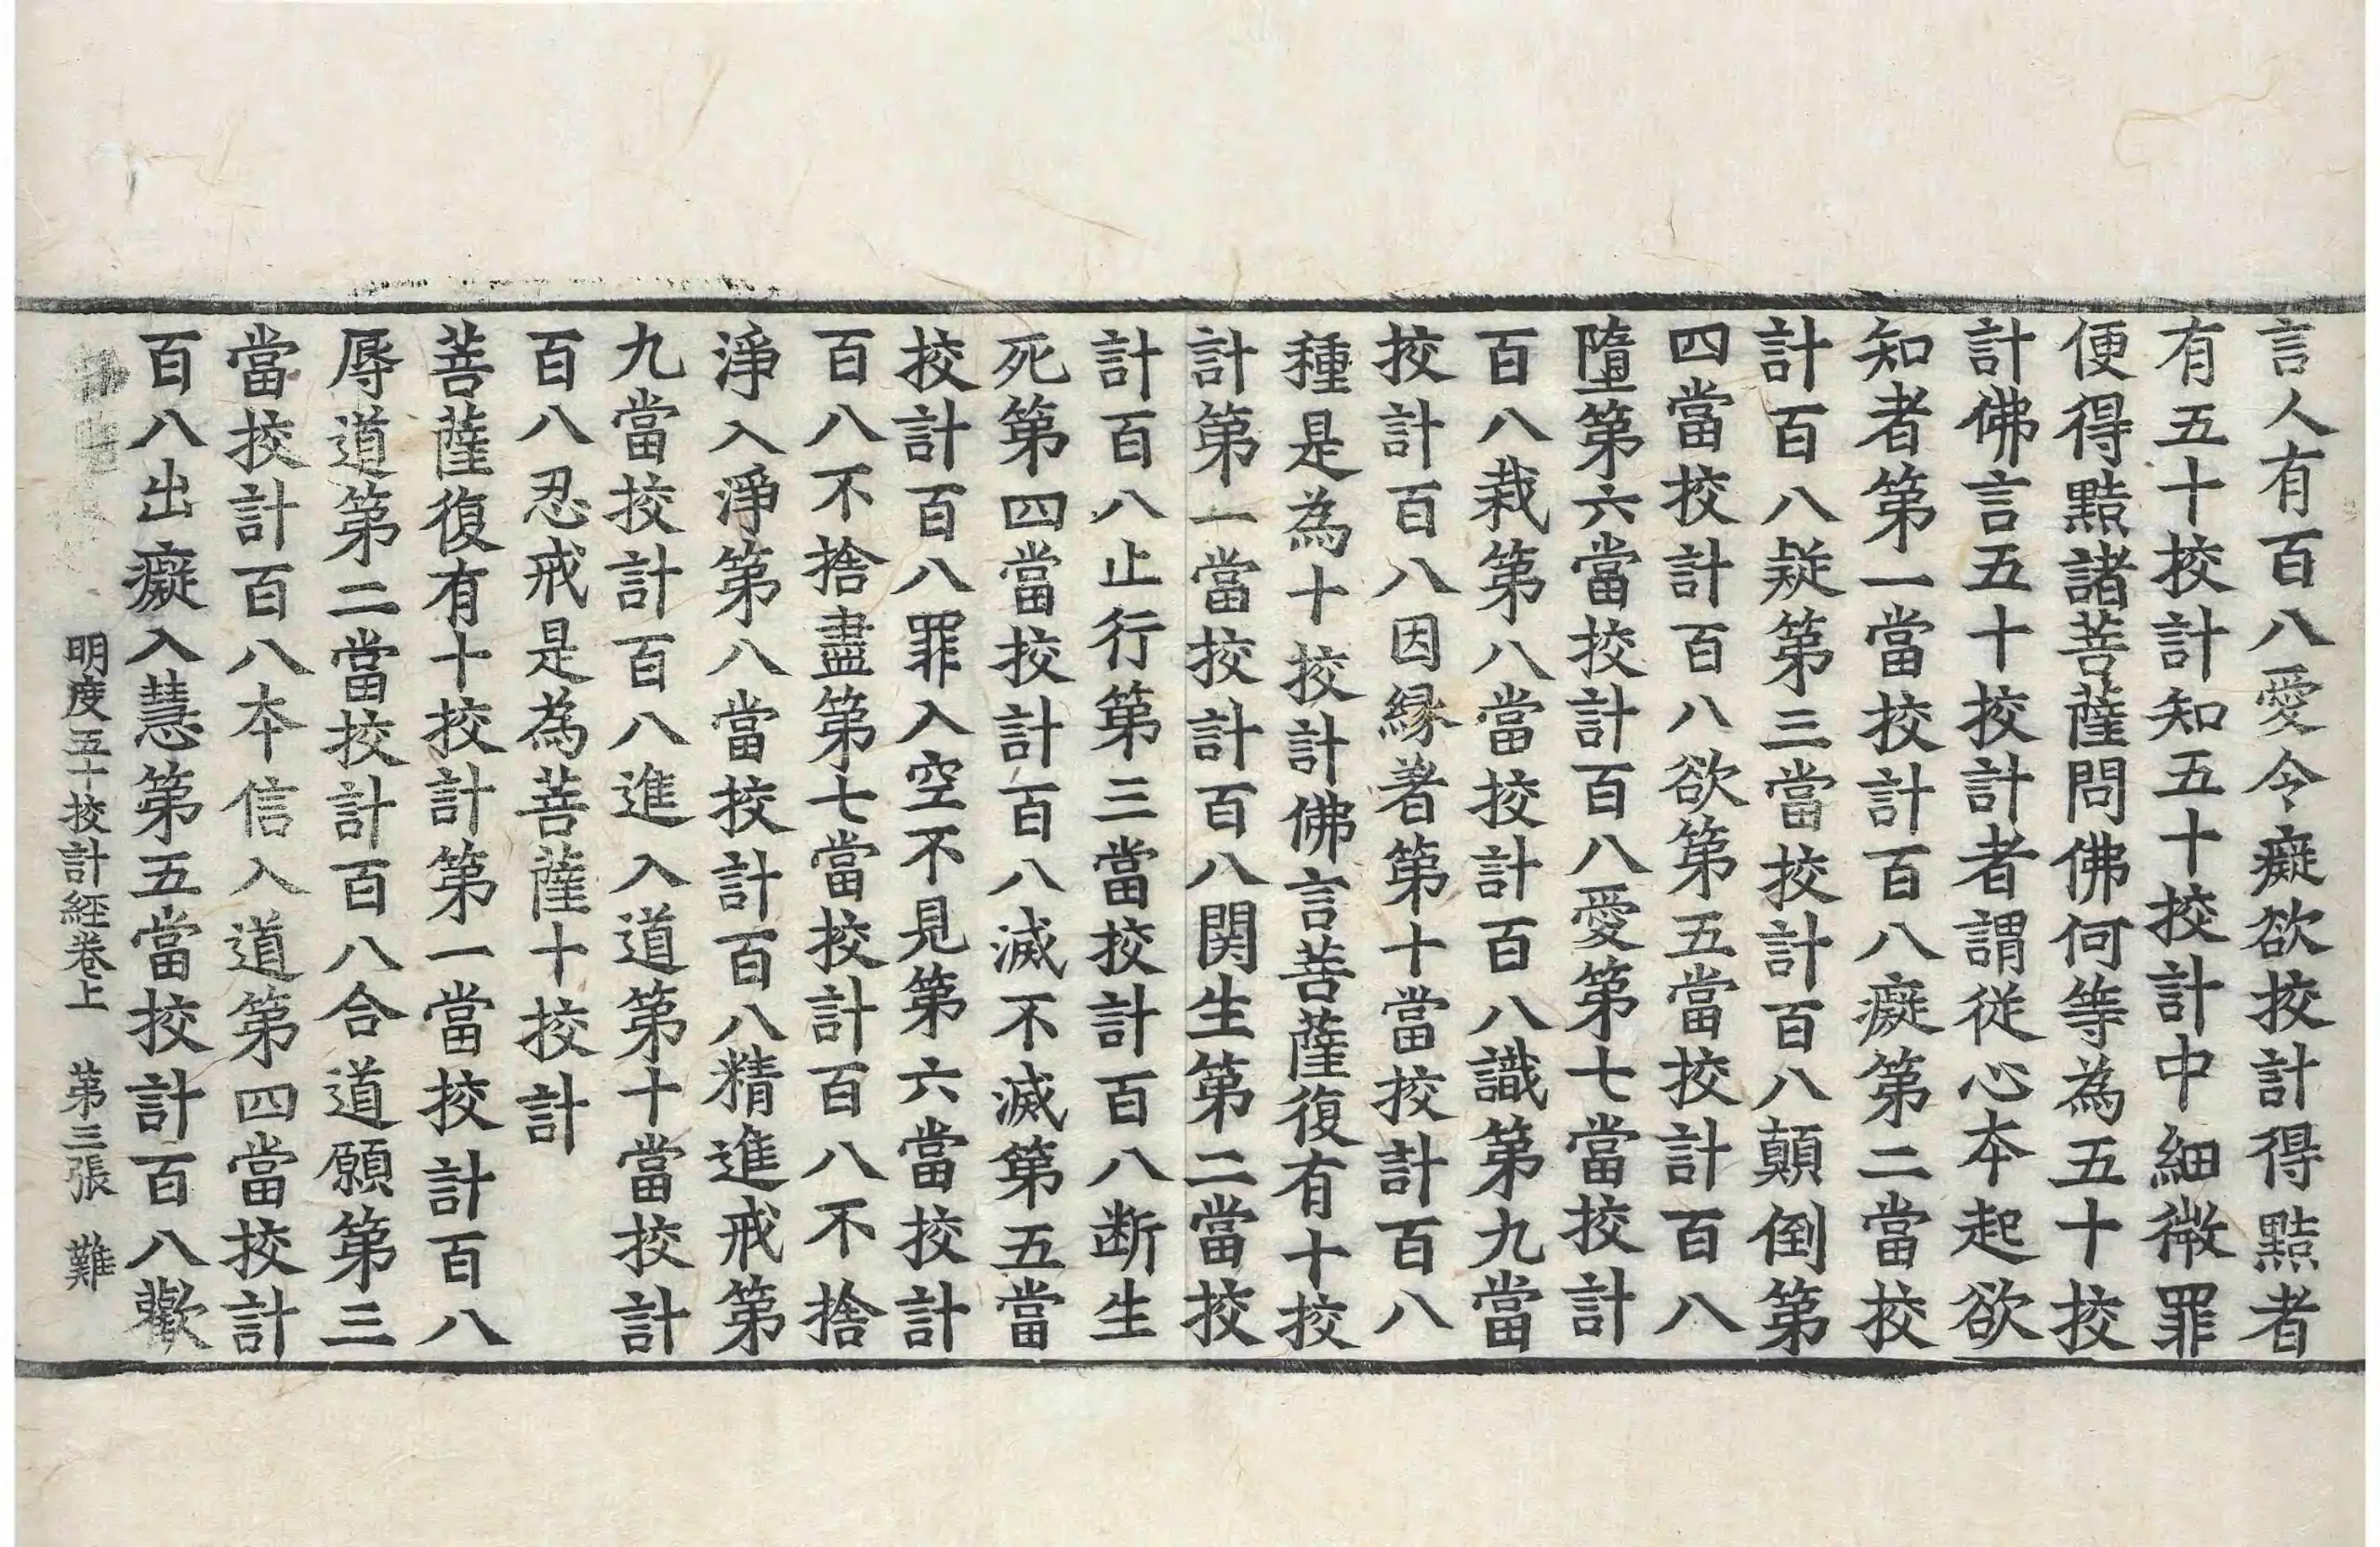 言人有百八愛令癡欲挍計得黠者
有五十挍計知五十挍計中細微罪
便得黠諸菩薩問佛何等為五十挍
計佛言五十挍計者謂從心本起欲
知者第一當挍計百八癡第二當挍
計百八疑第三當挍計百八顛倒第
四當挍計百八欲第五當挍計百八
墮第六當挍計百八愛第七當挍計
百八栽第八當挍計百八識第九當
挍計百八因緣著第十當挍計百八
種是為十挍計佛言菩薩復有十挍
計第一當挍計百八関生第二當挍
計百八止行第三當挍計百八断生
死第四當挍計百八滅不滅第五當
挍計百八罪入空不見第六當挍計
百八不捨盡第七當挍計百八不捨
淨入淨第八當挍計百八精進戒第
九當挍計百八進入道第十當挍計
百八忍戒是為菩薩十挍計
菩薩復有十挍計第一當挍計百八
辱道第二當挍計百八合道願第三
當挍計百八本信入道第四當挍計
百八出癡入慧第五當挍計百八歡
明度五十挍計經卷上 第三張 難